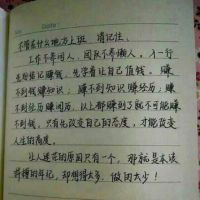 不管在什么地方上班，请记住，
工作不养闲人，团队不养懒人。入一行
先别惦记赚钱，先学着让自己值钱。赚
不到钱赚知识，赚不到知识赚经历，赚
不到经历赚阅历，以上都赚到了就不可能赚
不到钱。只有先改变自己的态度，才能改变
人生的高度。
让人迷茫的原因只有一个，那就是本该
拼搏的年纪，却想得太多，做的太少！